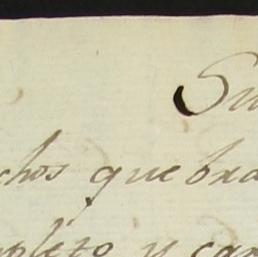 Su
chos quebra
mpleto y can